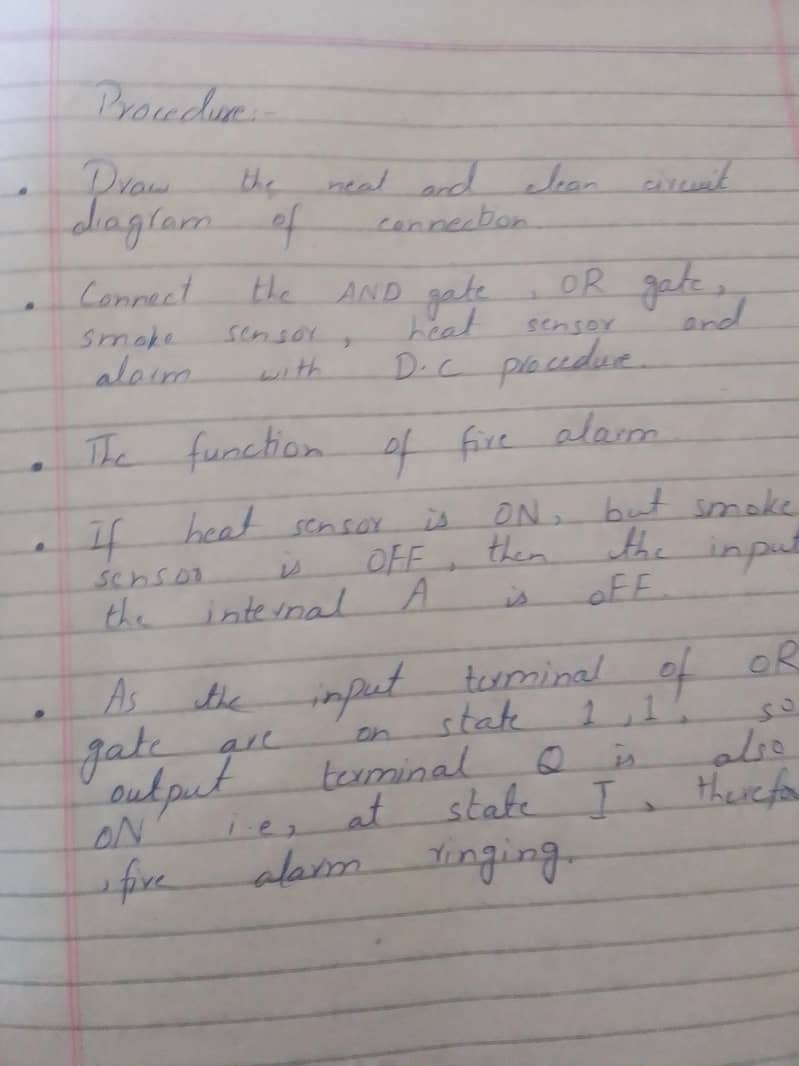 Procedure:-
Draw the neat and clean circuit
diagram of connection.
Connect the AND gate, OR gate,
smoke sensor, heat sensor and
alarm with D.C procedure.
The function of fire alarm
If heat sensor is ON, but smoke
sensor is OFF, then the input
the internal A is OFF.
As the input terminal of OR
gate are on state 1,1, so
output terminal Q is also
ON i.e, at state I, therefo
, fire alarm ringing.